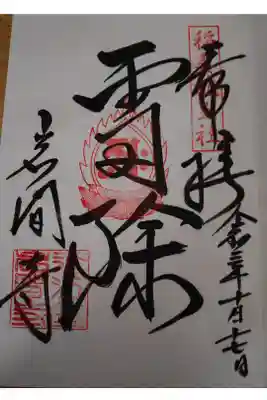 奉拝
令和三年十月十七日
雷除
岩間寺